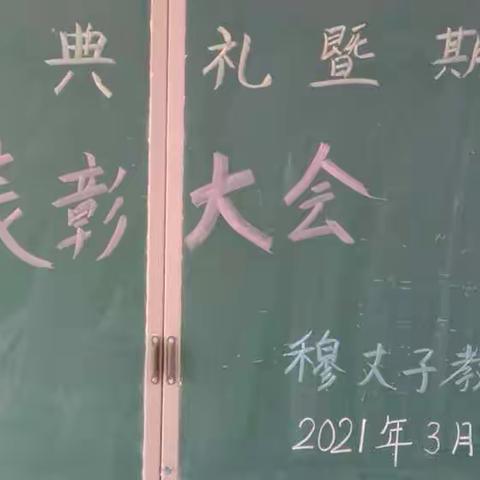 典礼暨期
表彰大会
穆丈子教
2021年3月